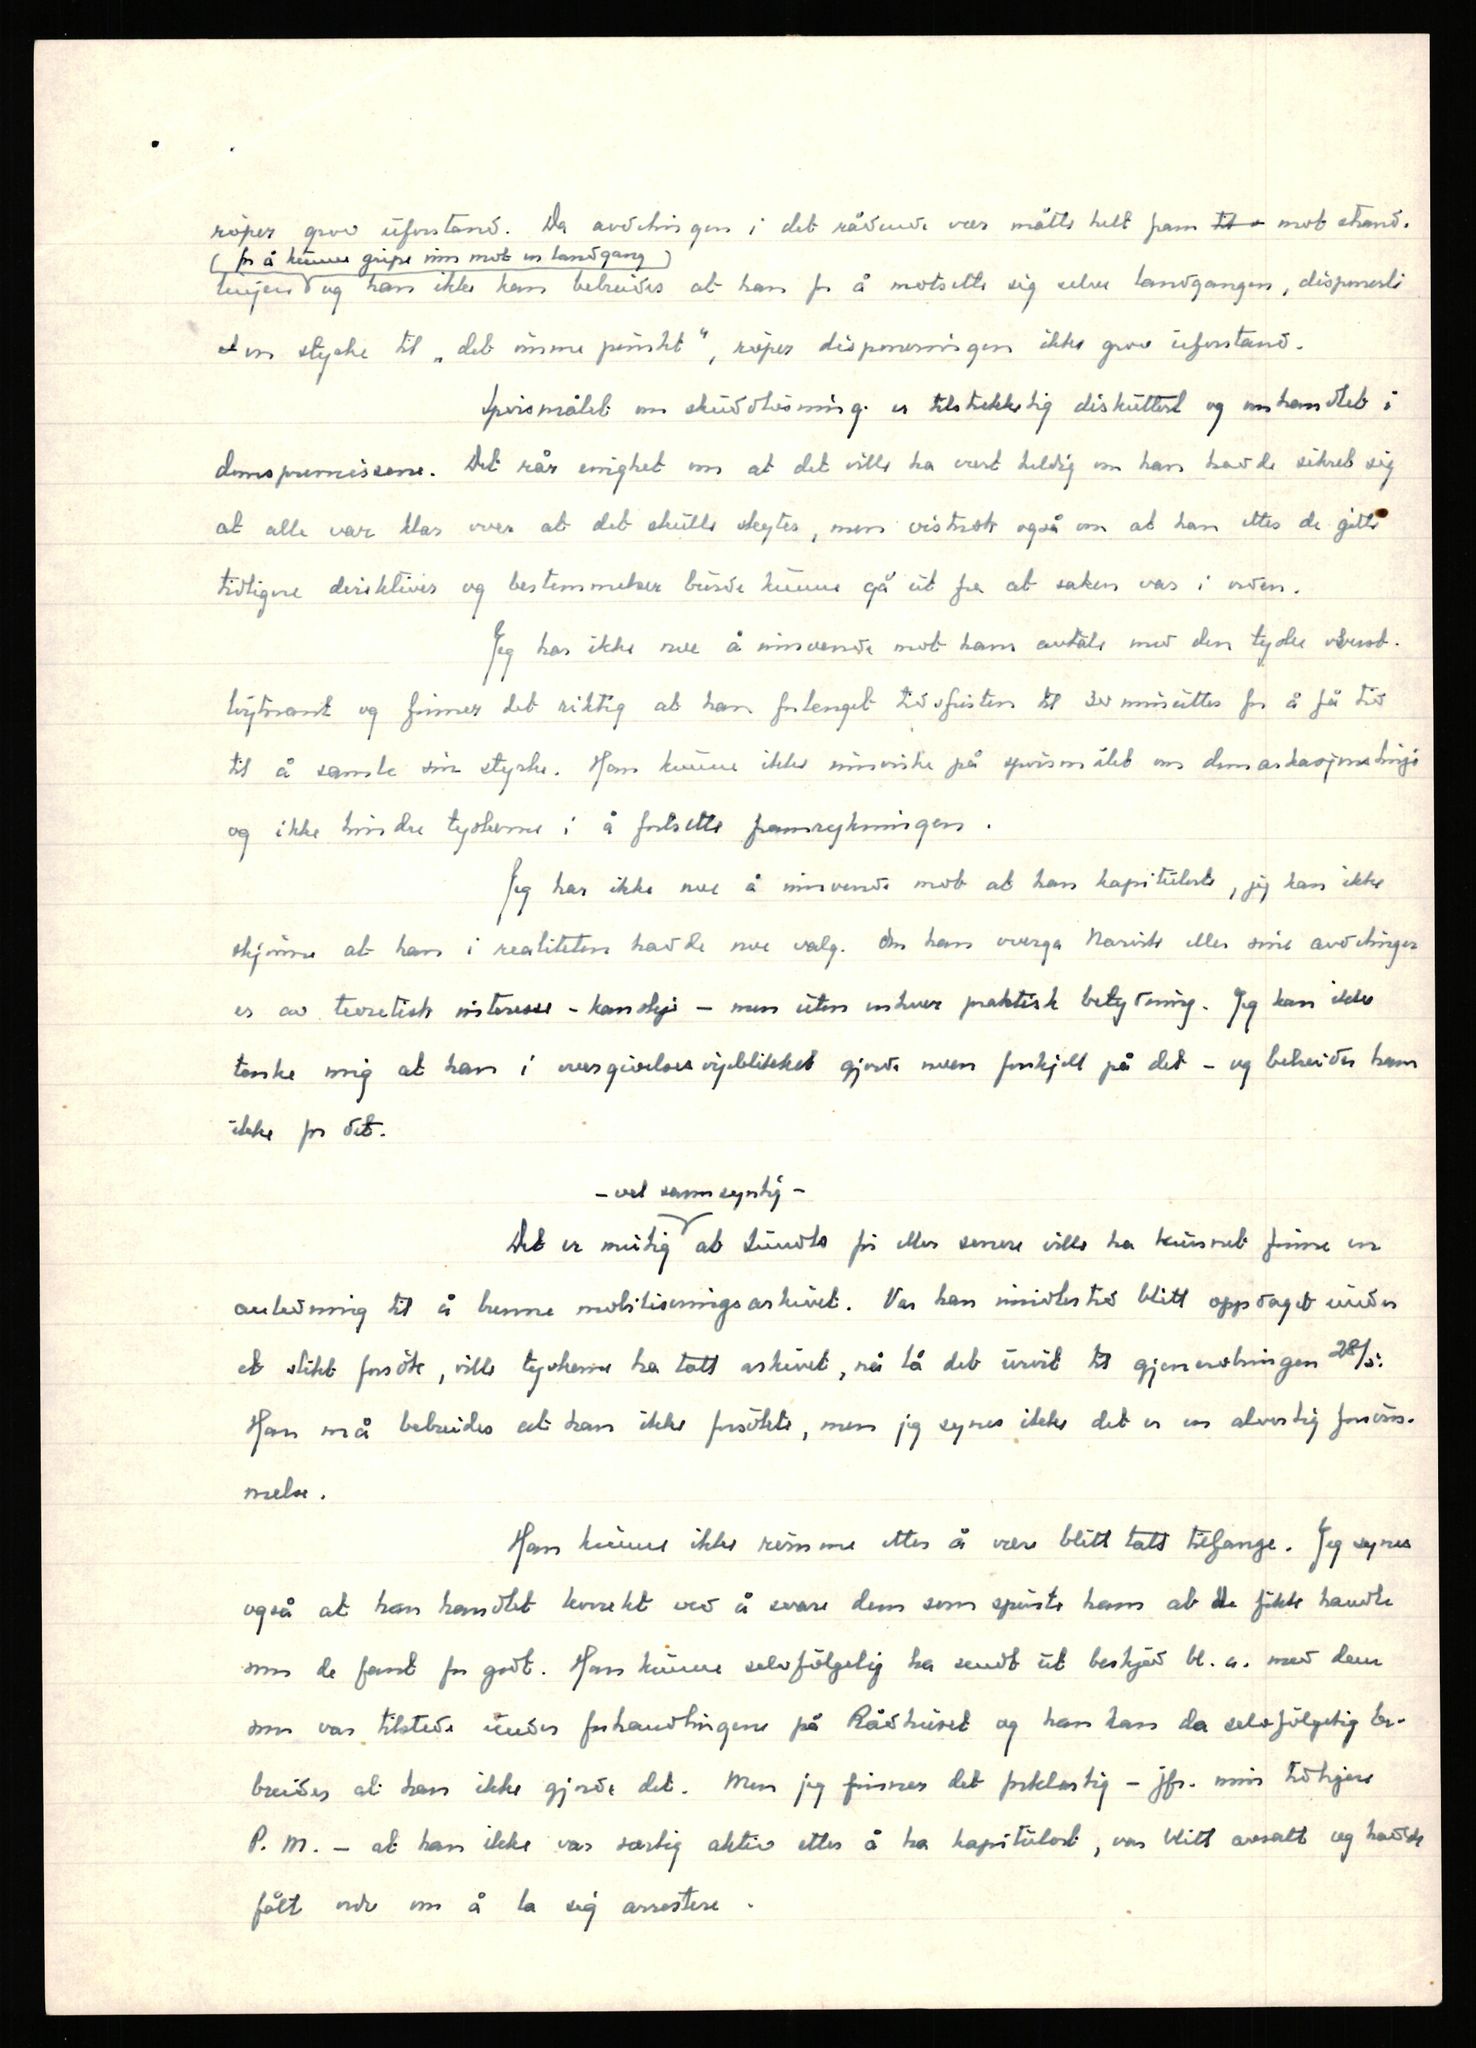 röper grov uforstand. Da avdelingen i det rådende vær måtte helt fram til mot strand-
(for å kunne gripe inn mot en landgang)
linjen og han ikke kan bebreides at han for å motsette sig selve landgangen, disponerte
den styrke til „det ømme punkt", röper disponeringen ikke grov uforstand.
Spörsmålet om skuddlösning er tilstrekkelig diskuttert og omhandlet i
domspremissene. Det rår enighet om at det ville ha vært heldig om han hadde sikret sig
at alle var klar over at det skulle skytes, men visstnok også om at han etter de gitte
tidligere direktiver og bestemmelser burde kunne gå ut fra at saken var i orden.
Jeg har ikke noe å innvende mot hans avtale med den tyske oberst-
löytnant og finner det riktig at han forlenget tidsfristen til 30 minutter for å få tid
til å samle sin styrke. Han kunne ikke innvirke på spörsmålet om demarkasjonslinje
og ikke hindre tyskerne i å fortsette framrykningen.
Jeg har ikke noe å innvende mot at han kapitulerte, jeg kan ikke
skjönne at han i realiteten hadde noe valg. Om han overga Narvik eller sine avdelinger
er av teoretisk interesse - kanskje - men uten enhver praktisk betydning. Jeg kan ikke
tenke mig at han i overgivelsesöyeblikket gjorde noen forskjell på det - og bebreider ham
ikke for det.
- vel sannsynlig -
Det er mulig at Sundlo för eller senere ville ha kunnet finne en
anledning til å brenne mobiliseringsarkivet. Var han imidlertid blitt oppdaget under
et slikt forsök, ville tyskerne ha tatt arkivet, nå lå det urört til gjenerobringen 28/5.
Han må bebreides at han ikke forsökte, men jeg synes ikke det er en alvorlig forsöm-
melse.
Han kunne ikke römme etter å være blitt tatt tilfange. Jeg synes
også at han handlet korrekt ved å svare dem som spurte ham at de fikk handle
som de fant for godt. Han kunne selvfölgelig ha sendt ut beskjed bl. a. med dem
som var tilstede under forhandlingene på Rådhuset og han kan da selvfölgelig be-
breides at han ikke gjorde det. Men jeg finner det forklarlig - jfr. min tidligere
P. M. - at han ikke var særlig aktiv etter å ha kapitulert, var blitt avsatt og hadde
fått ordre om å la sig arrestere.